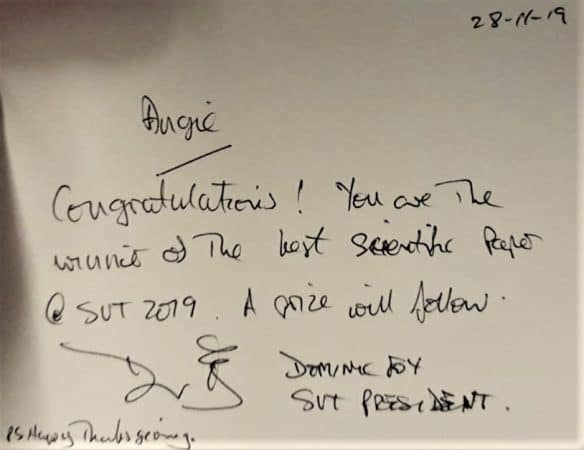 28-11-19
Angie
Congratulations! You are The
winner of The best Scientific Paper
@ SUT 2019. A prize will follow.
DOMINIC JOY
SUT PRESIDENT.
PS Happy Thanksgiving.